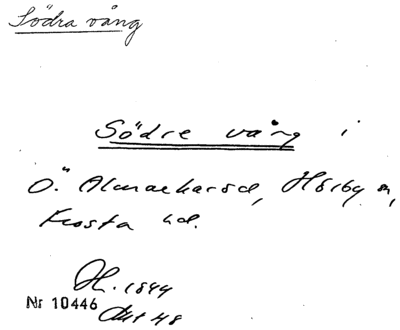 Södra vång
Södre vång i
Ö. Almaekarsd, Hörby sn,
Frosta hd.
H. 1844
Nr 10446
Akt 48